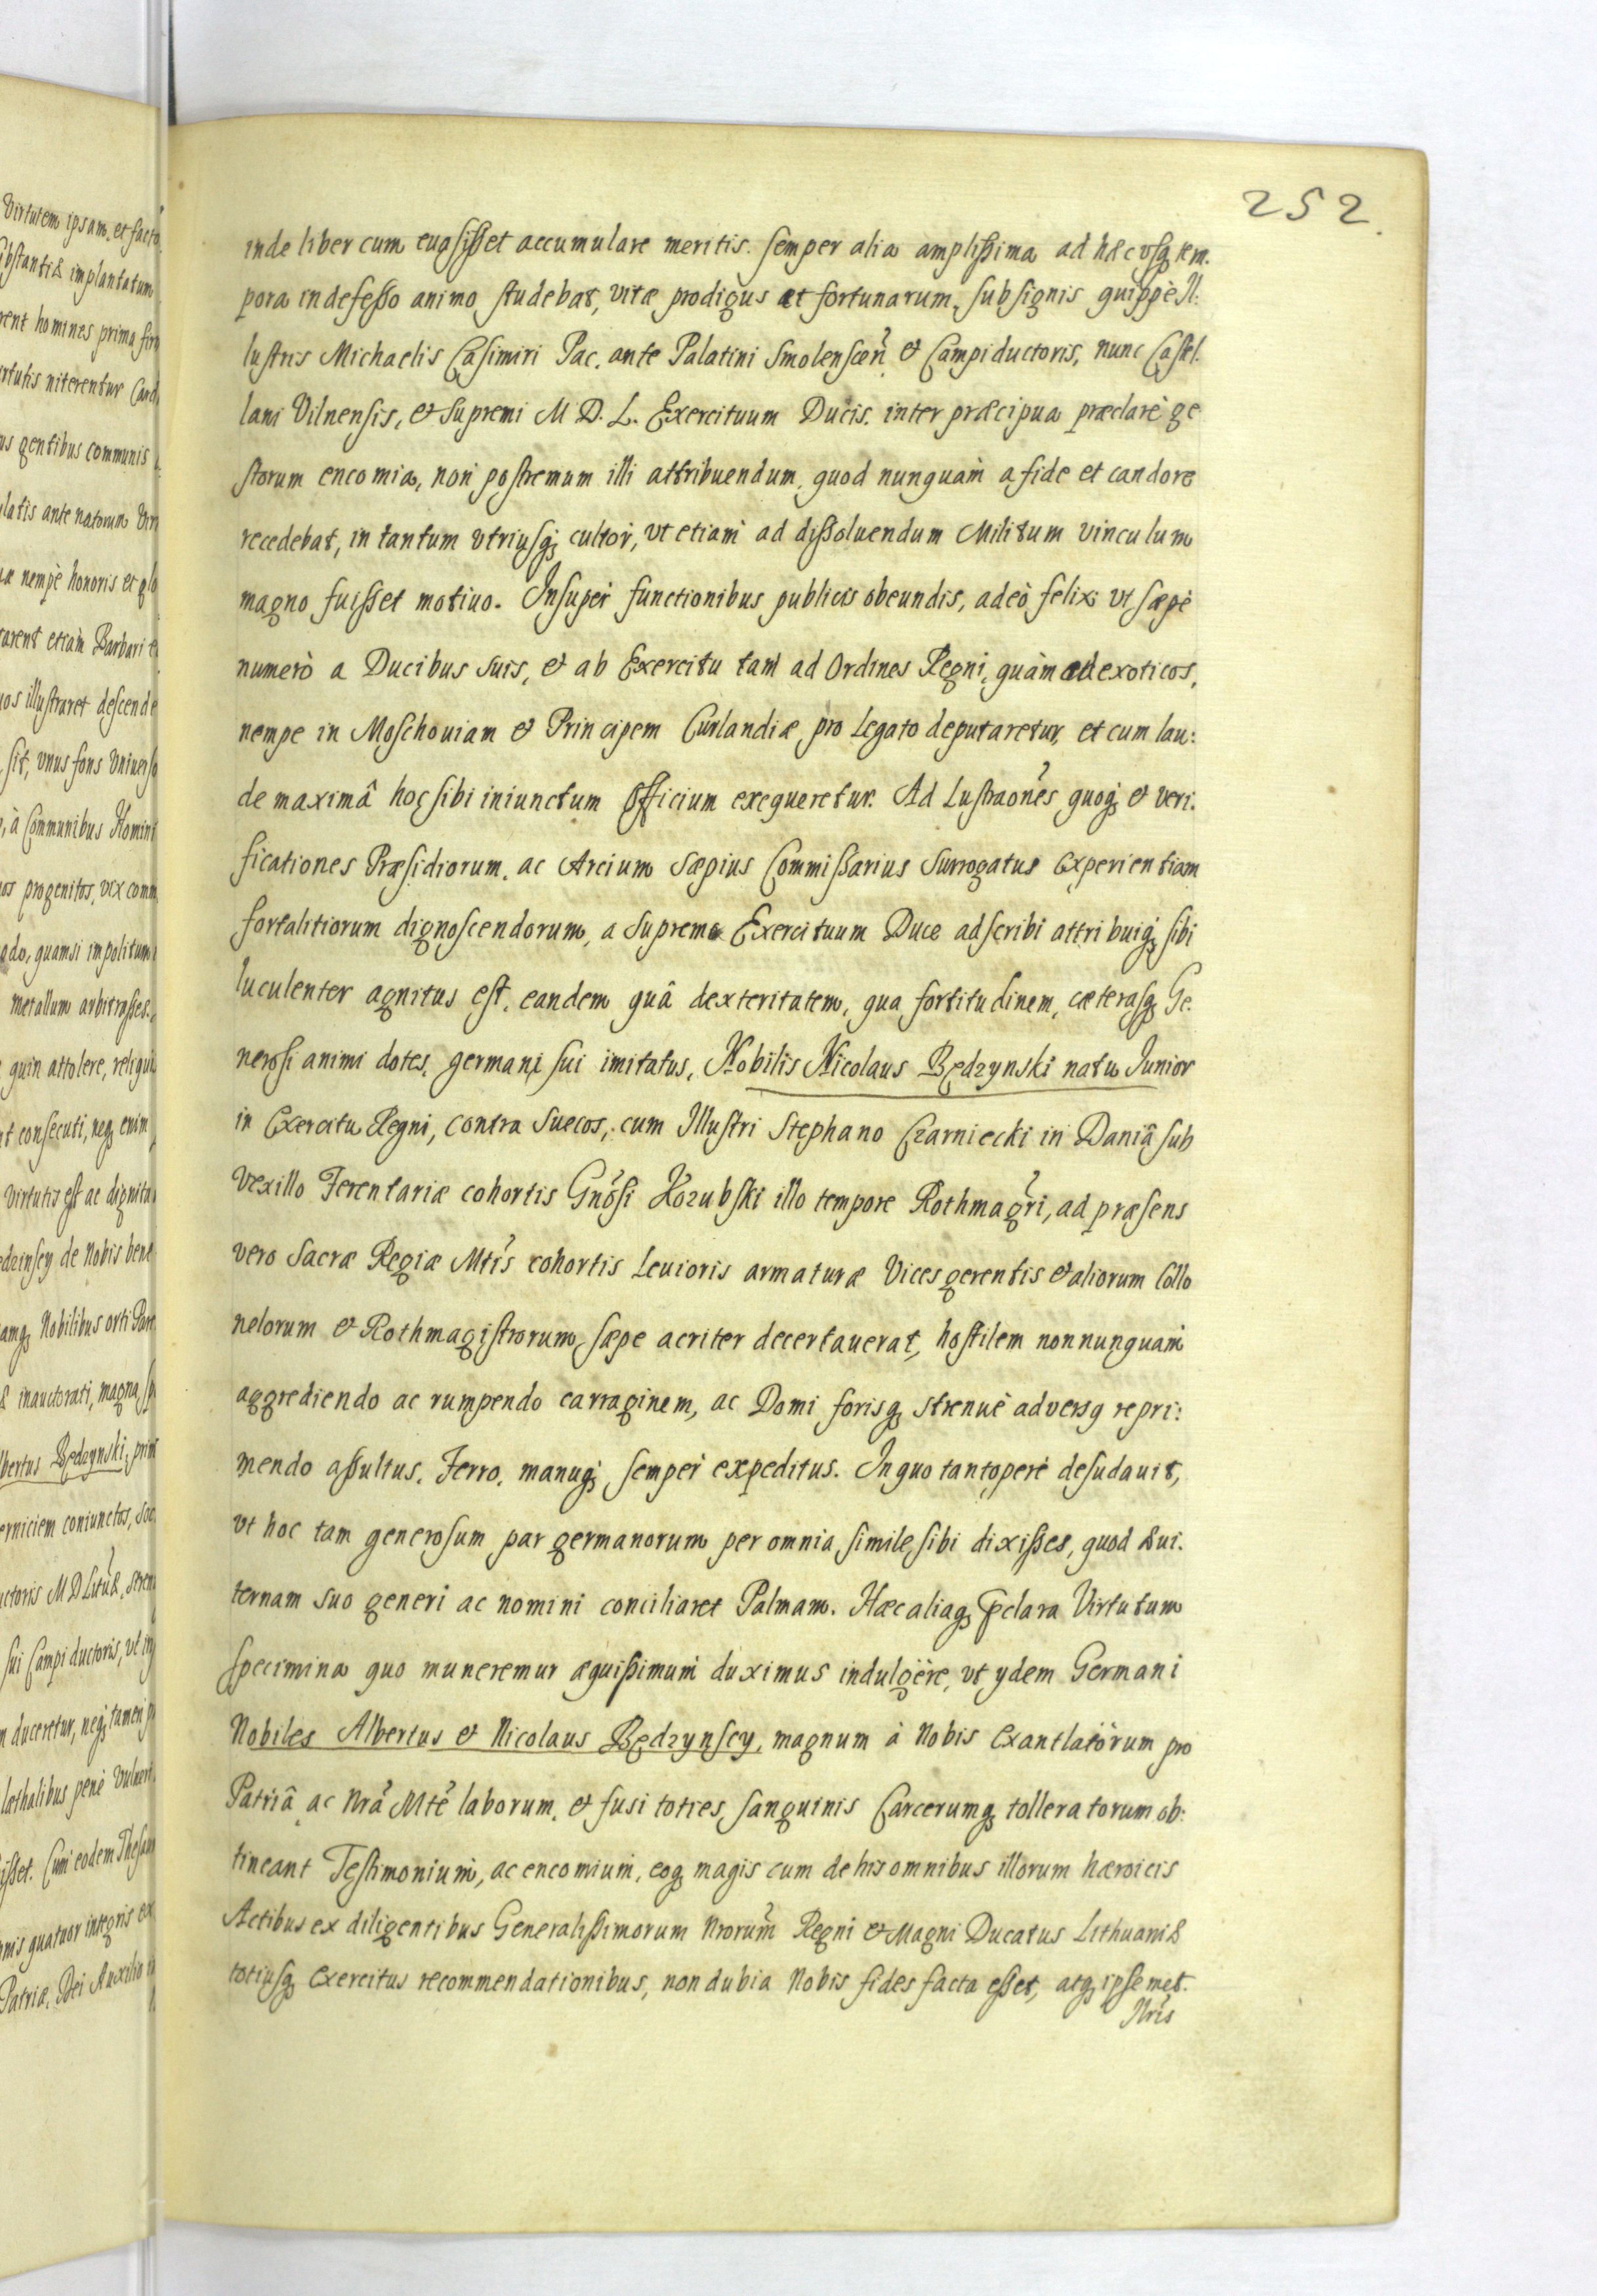 252.
inde liber cum euasisset accumulare meritis. semper alia amplissima ad hæc vsq; tem.
pora indefesso animo studebat, vitæ prodigus et fortunarum, sub signis quippè Il:
lustris Michaelis Casimiri Pac. ante Palatini Smolenscen̄ & Campiductoris, nunc Castel.
lani Vilnensis, & Supremi M D. L. Exercituum Ducis. inter præcipua præclarè ge
storum encomia, non postremum illi attribuendum, quod nunquam a fide et candore
recedebat, in tantum vtriusq; cultor, vt etiam ad dissoluendum Militum vinculum
magno fuisset motiuo. Insuper functionibus publicis obeundis, adeò felix vt sæpè
numerò a Ducibus suis, & ab Exercitu tam ad Ordines Regni, quàm ad exoticos,
nempe in Moschouiam & Principem Curlandiæ pro Legato deputaretur, et cum lau:
de maximâ hoc sibi iniunctum Officium exequeretur. Ad Lustraones quoq; & veri.
ficationes Præsidiorum. ac Arcium sæpius Commissarius Surrogatus experientiam
fortalitiorum dignoscendorum, a Supremo Exercituum Duce adscribi attribuiq; sibi
luculenter agnitus est. eandem quâ dexteritatem, qua fortitudinem, cæterasq; Ge.
nerosi animi dotes, germani sui imitatus, Nobilis Nicolaus Będzynski natu Junior
in Exercitu Regni, contra Suecos, cum Illustri Stephano Czarniecki in Daniâ sub
Vexillo Ferentariæ cohortis Gnosi Kozubski illo tempore Rothmagri, ad præsens
vero Sacræ Regiæ Mtis cohortis Leuioris armaturæ Vices gerentis & aliorum Collo
nelorum & Rothmagistrorum sæpe acriter decertauerat, hostilem nonnunquam
aggrediendo ac rumpendo carraginem, ac Domi forisq; strenuè adversq repri:
mendo assultus. Ferro, manuq; semper expeditus. In quo tantoperè desudauit,
vt hoc tam generosum par germanorum per omnia simile sibi dixisses, quod æui.
ternam suo generi ac nomini conciliaret Palmam. Hæc aliaq; p̄clara Virtutum
specimina quo muneremur æquissimum duximus indulgère, vt ydem Germani
Nobiles Albertus & Nicolaus Będzynscy, magnum à Nobis exantlatòrum pro
Patriâ ac Nrâ Mte laborum, & fusi toties sanguinis Carcerumq; tolleratorum ob:
tineant Testimonium, ac encomium, eoq; magis cum de his omnibus illorum hæroicis
Actibus ex diligentibus Generalissimorum Nrorum Regni & Magni Ducatus Lithuaniæ
totiusq; exercitus recommendationibus, non dubia Nobis fides facta esset, atq; ipsemet.
Nris